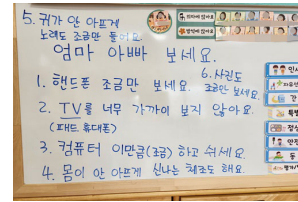 5. 귀가 안 아프게
노래도 조금만 들어요.
엄마 아빠 보세요.
1. 핸드폰 조금만 보세요.
6. 사진도
조금만 보세요.
2. TV를 너무 가까이 보지 않아요.
(패드, 휴대폰)
3. 컴퓨터 이만큼(조금) 하고 쉬세요.
4. 몸이 안 아프게 신나는 체조도 해요.